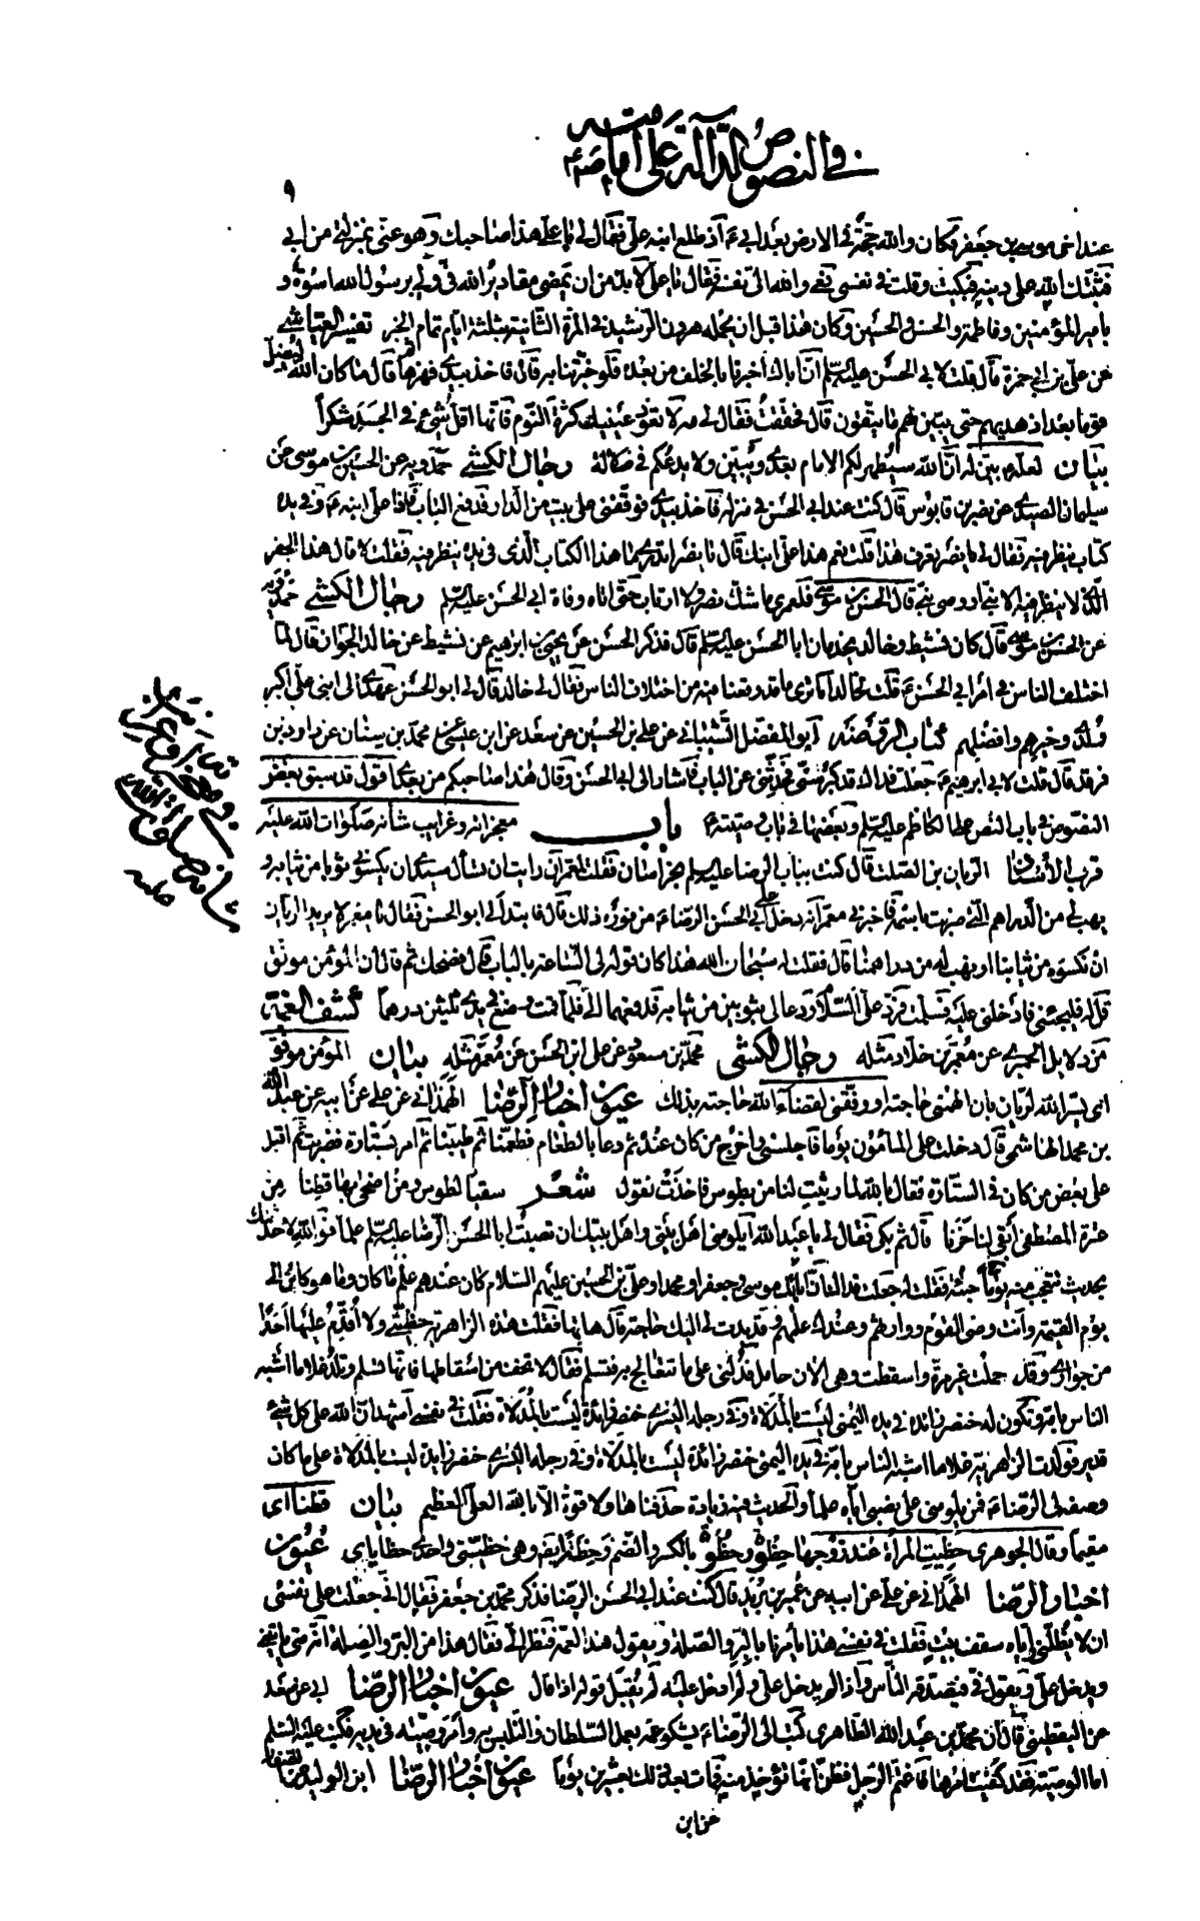 في النصوص الدالة على امامته ص ع
٩
عند اخي موسى بن جعفر فكان والله حجة في الارض بعد ابي ع اذ طلع ابنه علي فقال لي يا علي هذا صاحبك وهو عني بمنزلتي من ابي
فثبتك الله على دينه فبكيت وقلت في نفسي نعى والله الي نفسه فقال يا علي لا بد من ان تمضي مقادير الله في ولي برسول الله اسوة و
بامير المؤمنين وفاطمة والحسن والحسين وكان هذا قبل ان يحمله هرون الرشيد في المرة الثانية بثلثة ايام تمام الخبر تفسير العياشي
عن علي بن ابي حمزة قال قلت لابي الحسن عليه السلم ان اباك اخبرنا بالخلف من بعده فلو خبرتنا به قال فاخذ بيدي فهزها ثم قال ما كان الله ليضل
قوما بعد اذ هديهم حتى يبين لهم ما يتقون قال فخفقت فقال لي مه لا تعود عينيك كثرة النوم فانها اقل شيء في الجسد شكرا
بيان لعله بين له ان الله سيظهر لكم الامام بعدي ويبين ولا يدعكم في ضلالة رجال الكشي حمدويه عن الحسن بن موسى عن
سليمان الصيدي عن نصر بن قابوس قال كنت عند ابي الحسن في منزله فاخذ بيدي فوقفني على بيت من الدار فدفع الباب فاذا علي ابنه ع وفي يده
كتاب ينظر فيه فقال لي يا نصر تعرف هذا قلت نعم هذا علي ابنك قال يا نصر اتدري ما هذا الكتاب الذي في يده ينظر فيه فقلت لا قال هذا الجفر
الذي لا ينظر فيه الا نبي او وصي نبي قال الحسن بن موسى فلعمري ما شك نصر ولا ارتاب حتى اتاه وفاة ابي الحسن عليه السلم رجال الكشي حمدويه
عن الحسن بن موسى قال كان نشيط وخالد يخدمان ابا الحسن عليه السلم قال فذكر الحسن عن يحيى بن ابرهيم عن نشيط عن خالد الجوان قال لما
اختلف الناس في امر ابي الحسن ع قلت لخالد اما ترى ما قد وقعنا فيه من اختلاف الناس فقال لي خالد قال لي ابو الحسن عهدي الى ابني علي اكبر
ولدي وخيرهم وافضلهم كتاب ابو المفضل الشيباني عن علي بن الحسين عن سعد عن ابن عيسى محمد بن سنان عن داود بن
فرقد قال قلت لابي ابرهيم ع جعلت فداك قد كبر سني فحدثني عن الباب فاشار الى ابي الحسن وقال هذا صاحبكم من بعدي اقول قد سبق بعض
النصوص في باب النص على الكاظم عليه السلم وبعضها في باب وصيته ع باب معجزاته وغرايب شأنه صلوات الله عليه
قرب الاسناد الريان بن الصلت قال كنت بباب الرضا عليه السلم بخراسان فقلت لمعمر ان رايت ان تسأل سيدي ان يكسوني ثوبا من ثيابه و
يهب لي من الدراهم التي ضربت باسمه فاخبرني معمر انه دخل على ابي الحسن الرضا ع من فوره ذلك قال فابتدأني ابو الحسن فقال يا معمر لا يريد الريان
ان نكسوه من ثيابنا او نهب له من دراهمنا قال فقلت له سبحان الله هذا كان قوله لي الساعة بالباب قال فضحك ثم قال ان المؤمن موفق
قل له فليجئني فادخلني عليه فسلمت فرد علي السلام ودعا لي بثوبين من ثيابه فدفعهما الي فلما قمت وضع في يدي ثلثين درهما كشف الغمة
من دلايل الحميري عن معمر بن خلاد مثله رجال الكشي محمد بن مسعود عن علي بن الحسن عن معمر مثله بيان المؤمن موفق
اي يسر الله لريان بان الهمني حاجته او وفقني لقضاء الله حاجته بذلك عيون اخبار الرضا الهمداني عن علي عن ابيه عن عبد الله
بن محمد الهاشمي قال دخلت على المامون يوما فاجلسني واخرج من كان عنده ثم دعا بالطعام فطعمنا ثم طيبنا ثم امر بستارة فضربت ثم اقبل
على بعض من كان في الستارة فقال بالله لما رثيت لنا من بطوس فاخذت تقول شعر سقيا لطوس ومن اضحى بها قطنا من
عترة المصطفى ابقى لنا حزنا قال ثم بكى فقال لي يا عبد الله ايلومني اهل بيتي واهل بيتك ان نصبت ابا الحسن الرضا عليه السلم علما فوالله لاحدثنك
بحديث تتعجب منه جئته يوما فقلت له جعلت فداك ان اباك موسى وجعفرا ومحمدا وعلي بن الحسين عليهم السلام كان عندهم علم ما كان وما هو كاين الى
يوم القيمة وانت وصي القوم ووارثهم وعندك علمهم وقد بدت لي اليك حاجة قال هاتها فقلت هذه الزاهرية حظيتي ولا اقدم عليها احدا
من جواري وقد حملت غير مرة واسقطت وهي الان حامل فدلني على ما تتعالج به فتسلم فقال لا تخف من اسقاطها فانها تسلم وتلد غلاما اشبه
الناس بامه وتكون له خنصر زائدة في يده اليمنى ليست بالمدلاة وفي رجله اليسرى خنصر زائدة ليست بالمدلاة فقلت في نفسي اشهد ان الله على كل شيء
قدير فولدت الزاهرية غلاما اشبه الناس بامه في يده اليمنى خنصر زائدة ليست بالمدلاة وفي رجله اليسرى خنصر زايدة ليست بالمدلاة على ما كان
وصفه لي الرضا ع فمن يلومني على نصبي اياه علما والحديث فيه زيادة حذفناها ولا قوة الا بالله العلي العظيم بيان قطنا اي
مقيما وقال الجوهري حظيت المرأة عند زوجها حظوة وحظوة بالكسر والضم وحظة ايضا وهي حظيتي واحدى حظاياي عيون
اخبار الرضا الهمداني عن علي عن ابيه عن عمير بن يزيد قال كنت عند ابي الحسن الرضا فذكر محمد بن جعفر فقال اني جعلت على نفسي
ان لا يظلني واياه سقف بيت فقلت في نفسي هذا يأمرنا بالبر والصلة ويقول هذا لعمه فنظر الي فقال هذا من البر والصلة انه متى ياتيني
ويدخل علي ويقول في فيصدقه الناس واذا لم يدخل علي ولم ادخل عليه لم يقبل قوله اذا قال عيون اخبار الرضا ابي عن سعد
عن اليقطيني قال ان محمد بن عبد الله الطاهري كتب الى الرضا ع يشكو عمه بعمل السلطان والتلبس به وامر وصيته في يديه فكتب عليه السلم
اما الوصية فقد كفيت امرها فاغتم الرجل فظن انها تؤخذ منه فمات بعد ذلك بعشرين يوما عيون اخبار الرضا ابن الوليد عن الصفار
عن ابن
معجزاته وغرايب
شأنه صلوات الله
عليه